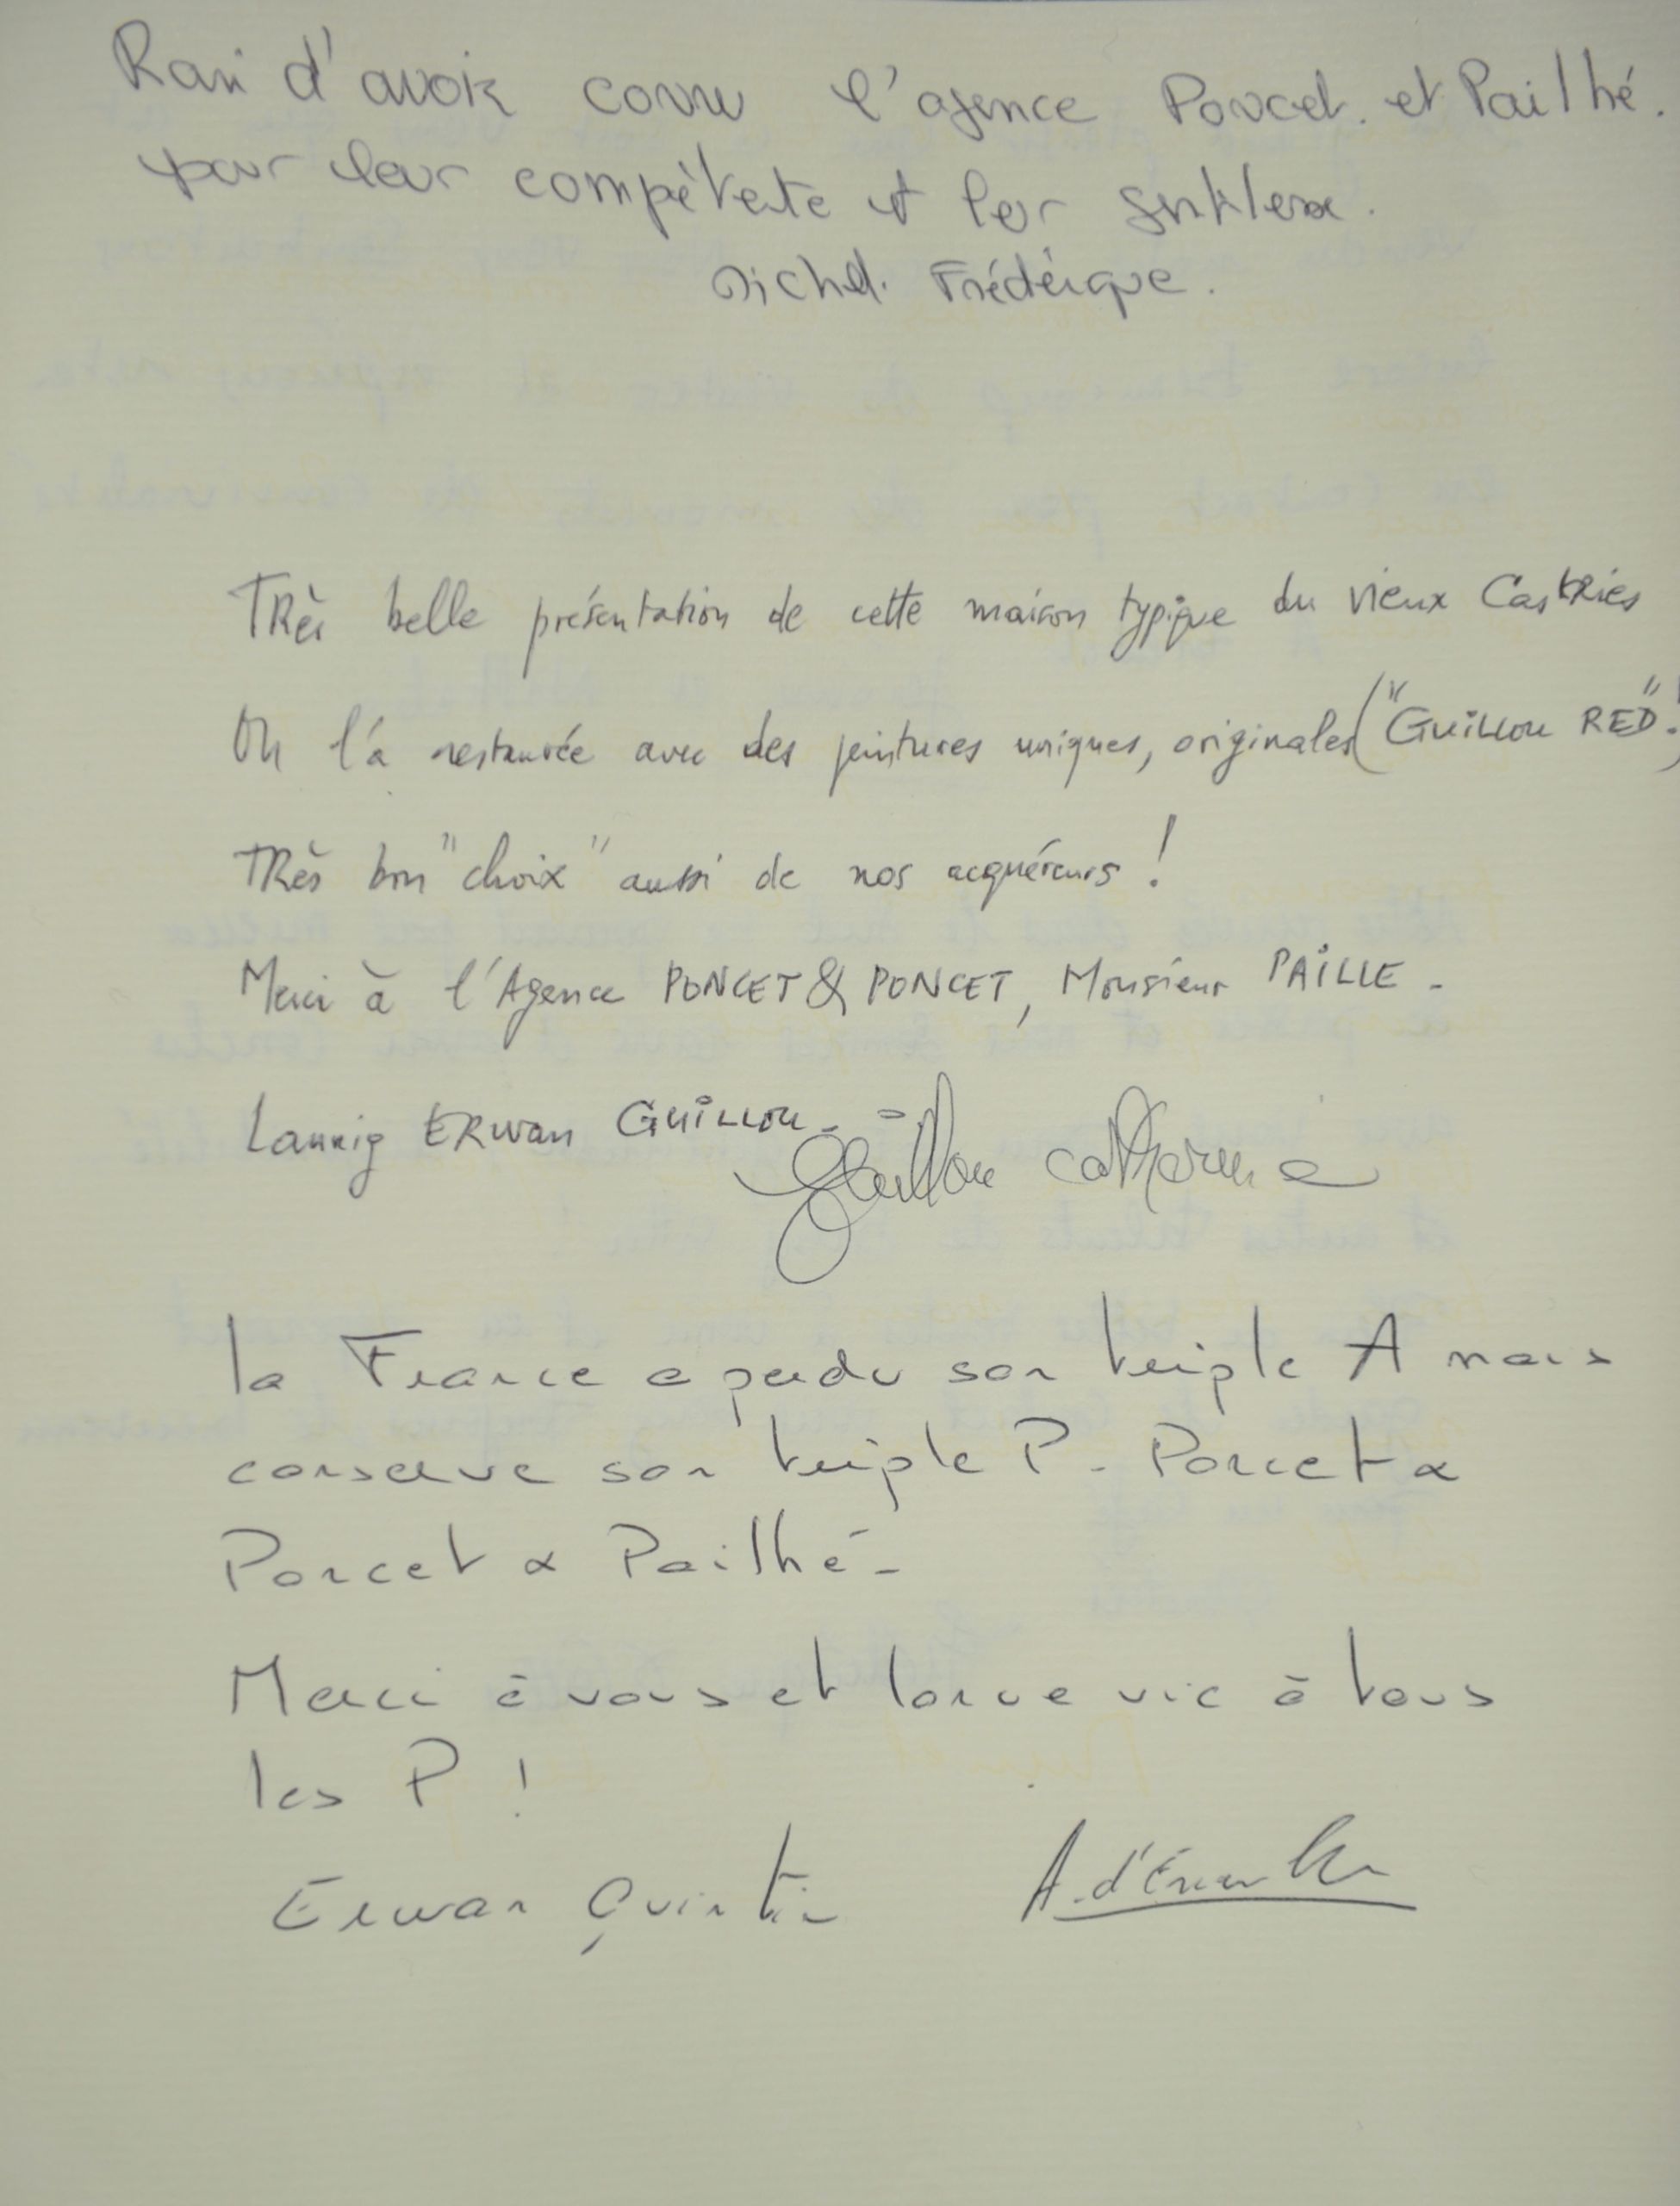 Ravi d'avoir connu l'agence Poncet. et Pailhé.
pour leur compétente et leur
Michel. Frédérique.
TRès belle présentation de cette maison typique du vieux CastRies
On l'a restaurée avec des peintures uniques, originales ("GUILLOU RED".)
TRès bon "choix" aussi de nos acquéreurs !
Merci à l'Agence PONCET & PONCET, Monsieur PAILLE -
Lannig ERWAN GUILLOU -
Guillou Catherine
la France a perdu son triple A mais
conserve son triple P - Poncet &
Poncet & Pailhé -
Merci à vous et longue vie à tous
les P !
Erwan Quintin